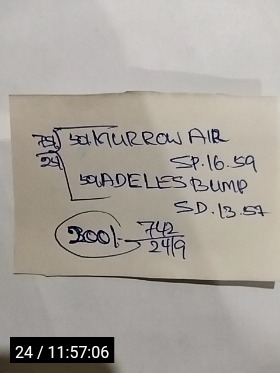 751 50% KURROW AIR
24 SP. 16.59
50% ADELES BUMP
SD. 13.57
300/- 742
24/9
24 / 11:57:06